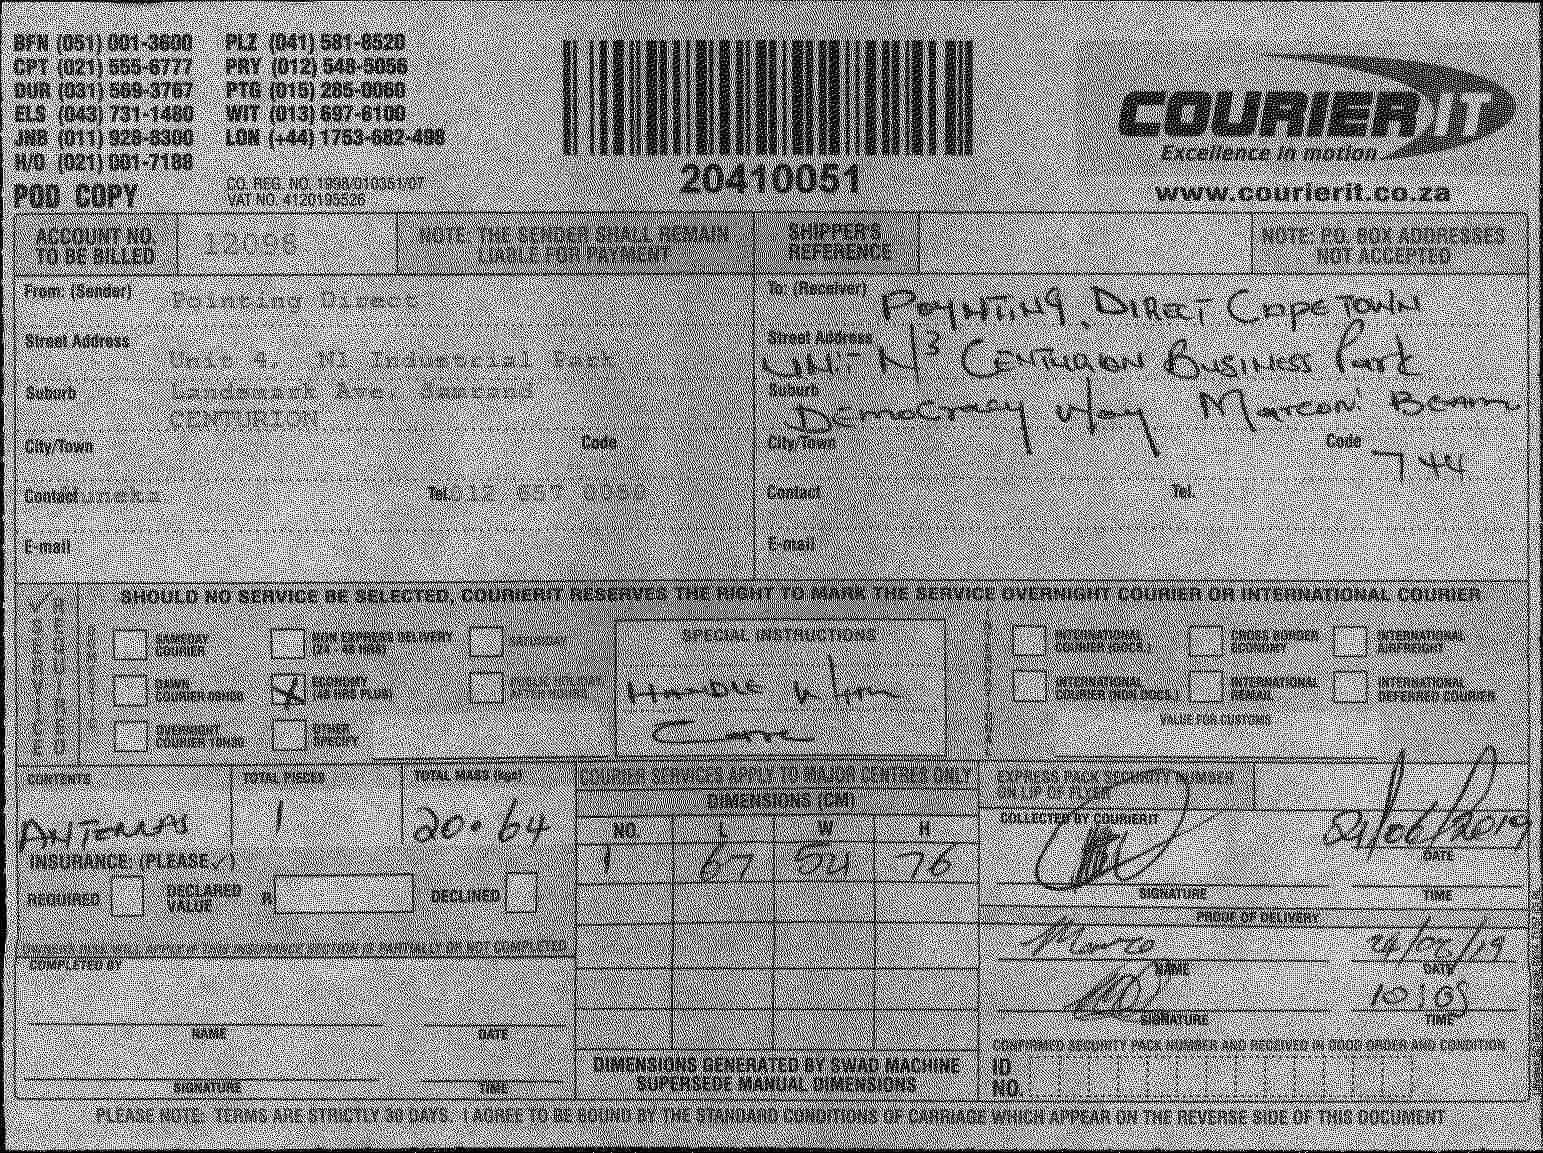 BFN (051) 001-3600 PLZ (041) 581-8520
CPT (021) 555-6777 PRY (012) 548-5056
DUR (031) 569-3767 PTG (015) 285-0060
ELS (043) 731-1480 WIT (013) 697-8100
JNB (011) 928-8300 LON (+44) 1753-682-498
H/O (021) 001-7188
POD COPY
CO. REG. NO. 1998/010351/07
VAT NO. 4120195526
20410051
COURIER IT
Excellence in motion
www.courierit.co.za
ACCOUNT NO. TO BE BILLED 12098
NOTE: THE SENDER SHALL REMAIN LIABLE FOR PAYMENT
SHIPPER'S REFERENCE
NOTE: P.O. BOX ADDRESSES NOT ACCEPTED
From: (Sender) Pointing Direct
Street Address Unit 4, N1 Industrial Park
Suburb Landmark Ave, Samrand
CENTURION
City/Town Code
Contact Tel.
E-mail
To: (Receiver) POYNTING DIRECT CAPE TOWN
Street Address UNIT N/3 CENTURION BUSINESS Park
Suburb DEMOCRACY Way MARCONI BEAM
City/Town Code 744
Contact Tel.
E-mail
SHOULD NO SERVICE BE SELECTED, COURIERIT RESERVES THE RIGHT TO MARK THE SERVICE OVERNIGHT COURIER OR INTERNATIONAL COURIER
SAMEDAY COURIER
NON EXPRESS DELIVERY (24 - 48 HRS)
SATURDAY
DAWN COURIER 09H00
ECONOMY (48 HRS PLUS)
OVERNIGHT COURIER 10H30
OTHER SPECIFY
SPECIAL INSTRUCTIONS
HANDLE With
Care
INTERNATIONAL COURIER (DOCS.)
CROSS BORDER ECONOMY
INTERNATIONAL AIRFREIGHT
INTERNATIONAL COURIER (NON DOCS.)
INTERNATIONAL REMAIL
INTERNATIONAL DEFERRED COURIER
VALUE FOR CUSTOMS
CONTENTS
ANTENNAS
TOTAL PIECES
1
TOTAL MASS (kgs)
20.64
INSURANCE: (PLEASE ✓)
REQUIRED
DECLARED VALUE R
DECLINED
COMPLETED BY
NAME DATE
SIGNATURE TIME
COURIER SERVICES APPLY TO MAJOR CENTRES ONLY
DIMENSIONS (CM)
NO. L W H
1 67 54 76
DIMENSIONS GENERATED BY SWAD MACHINE
SUPERSEDE MANUAL DIMENSIONS
EXPRESS PACK SECURITY NUMBER
ON LIP OF FLYER
COLLECTED BY COURIERIT
/06/2019
DATE
SIGNATURE TIME
PROOF OF DELIVERY
Marco
NAME DATE
10:05
SIGNATURE TIME
CONFIRMED SECURITY PACK NUMBER AND RECEIVED IN GOOD ORDER AND CONDITION
ID NO.
PLEASE NOTE: TERMS ARE STRICTLY 30 DAYS. I AGREE TO BE BOUND BY THE STANDARD CONDITIONS OF CARRIAGE WHICH APPEAR ON THE REVERSE SIDE OF THIS DOCUMENT